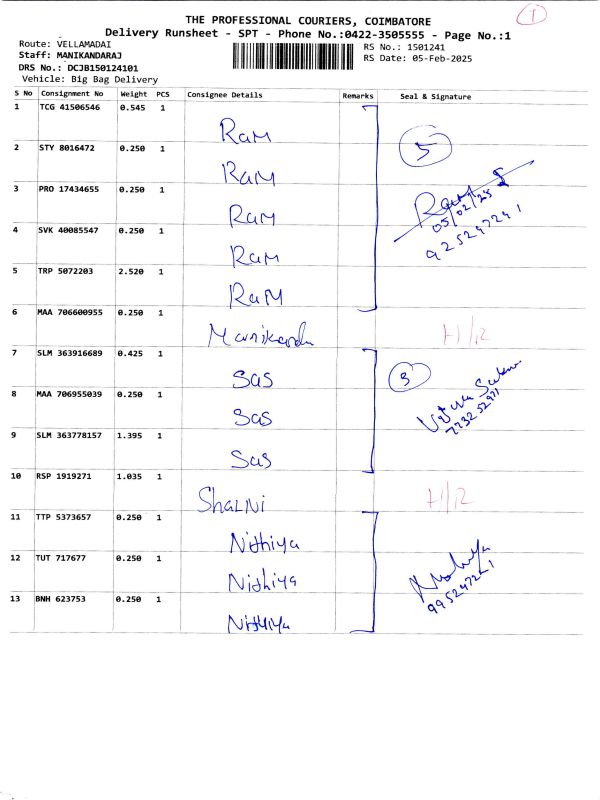 1
THE PROFESSIONAL COURIERS, COIMBATORE
Delivery Runsheet - SPT - Phone No.:0422-3505555 - Page No.:1
Route: VELLAMADAI
RS No.: 1501241
Staff: MANIKANDARAJ
RS Date: 05-Feb-2025
DRS No.: DCJB150124101
Vehicle: Big Bag Delivery
S No Consignment No Weight PCS Consignee Details Remarks Seal & Signature
1 TCG 41506546 0.545 1 Ram
5
2 STY 8016472 0.250 1 Ram
3 PRO 17434655 0.250 1 Ram
05/02/25
925247241
4 SVK 40085547 0.250 1 Ram
5 TRP 5072203 2.520 1 Ram
6 MAA 706600955 0.250 1
7 SLM 363916689 0.425 1 SaS
3
8 MAA 706955039 0.250 1 SaS
9 SLM 363778157 1.395 1 SaS
10 RSP 1919271 1.035 1 Shalni
11 TTP 5373657 0.250 1 Nithiya
12 TUT 717677 0.250 1 Nithiya
13 BNH 623753 0.250 1 Nithiya